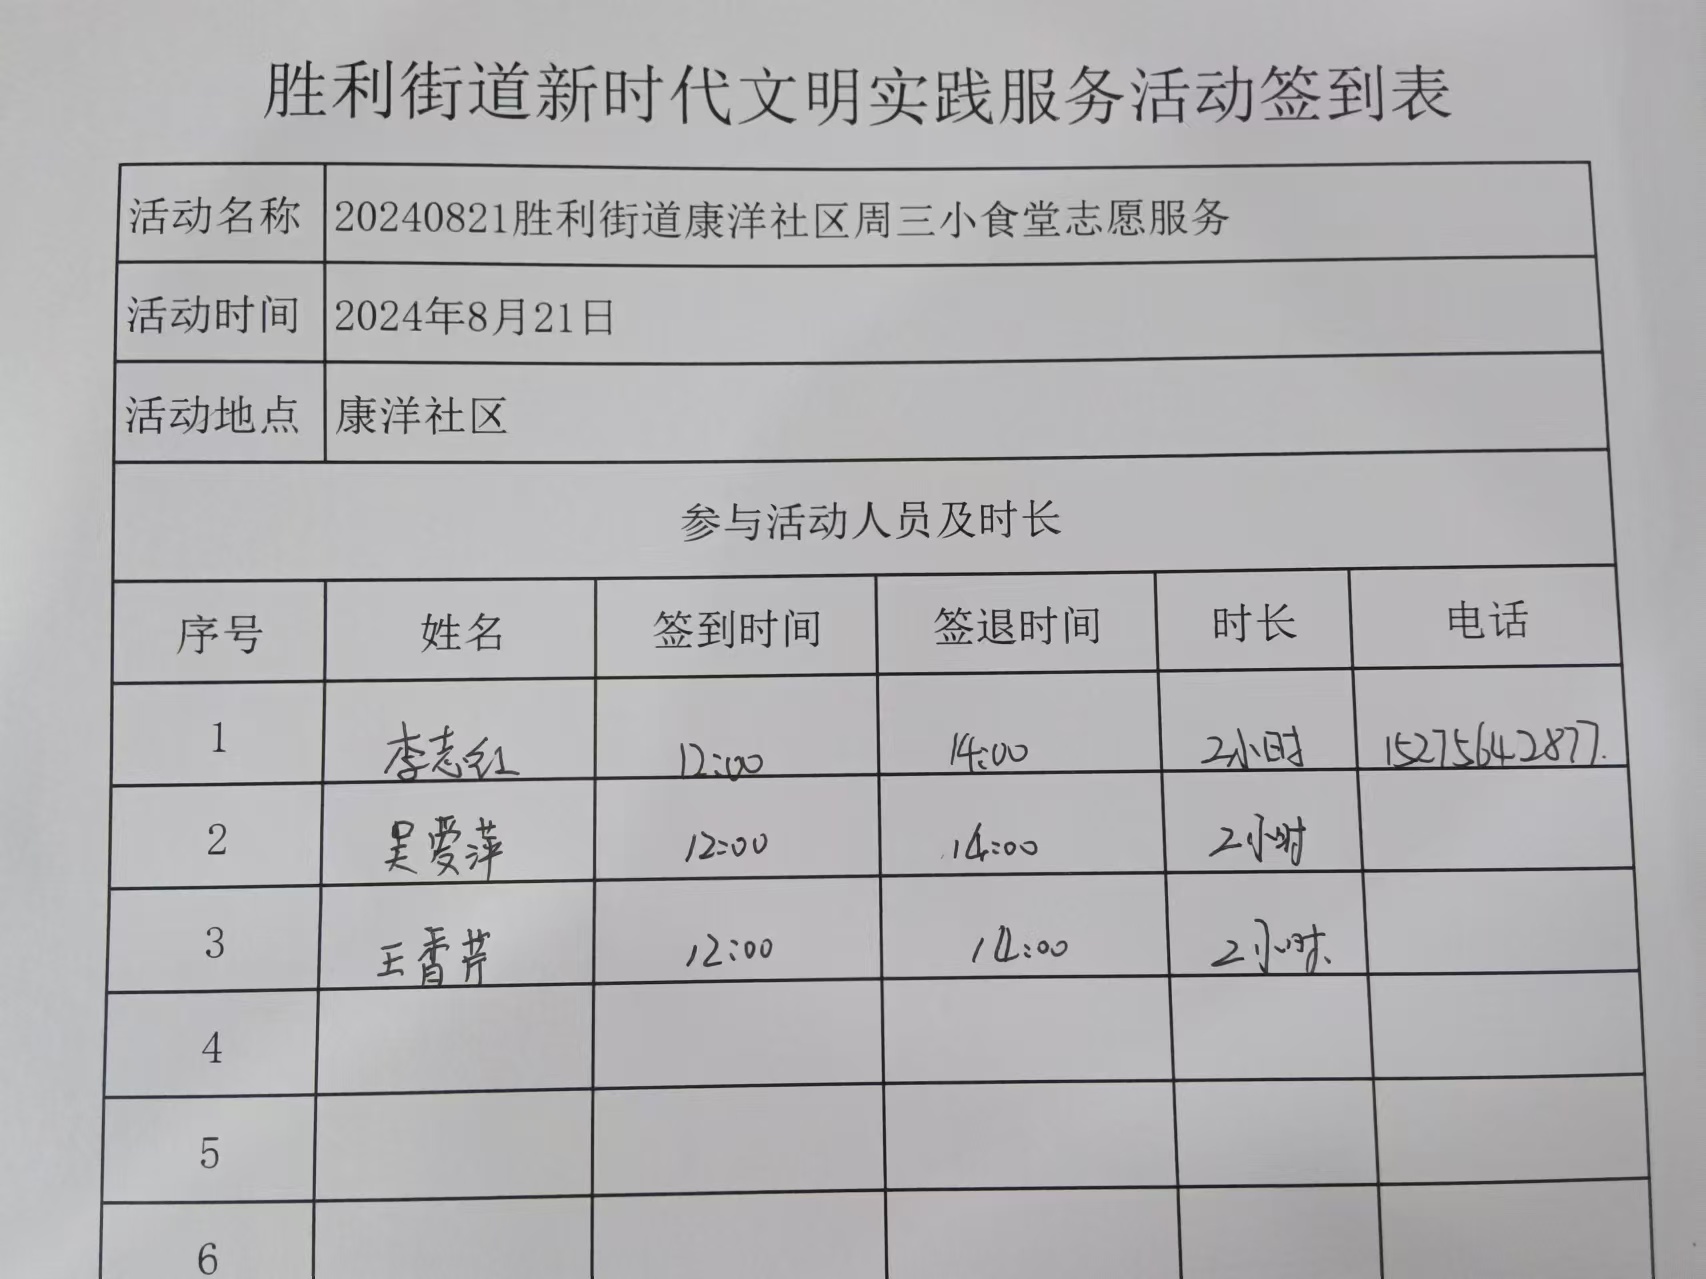 胜利街道新时代文明实践服务活动签到表
活动名称 20240821胜利街道康洋社区周三小食堂志愿服务
活动时间 2024年8月21日
活动地点 康洋社区
参与活动人员及时长
序号 姓名 签到时间 签退时间 时长 电话
1 李志红 12:00 14:00 2小时 15275642877.
2 吴爱萍 12:00 14:00 2小时
3 王香芹 12:00 14:00 2小时、
4
5
6